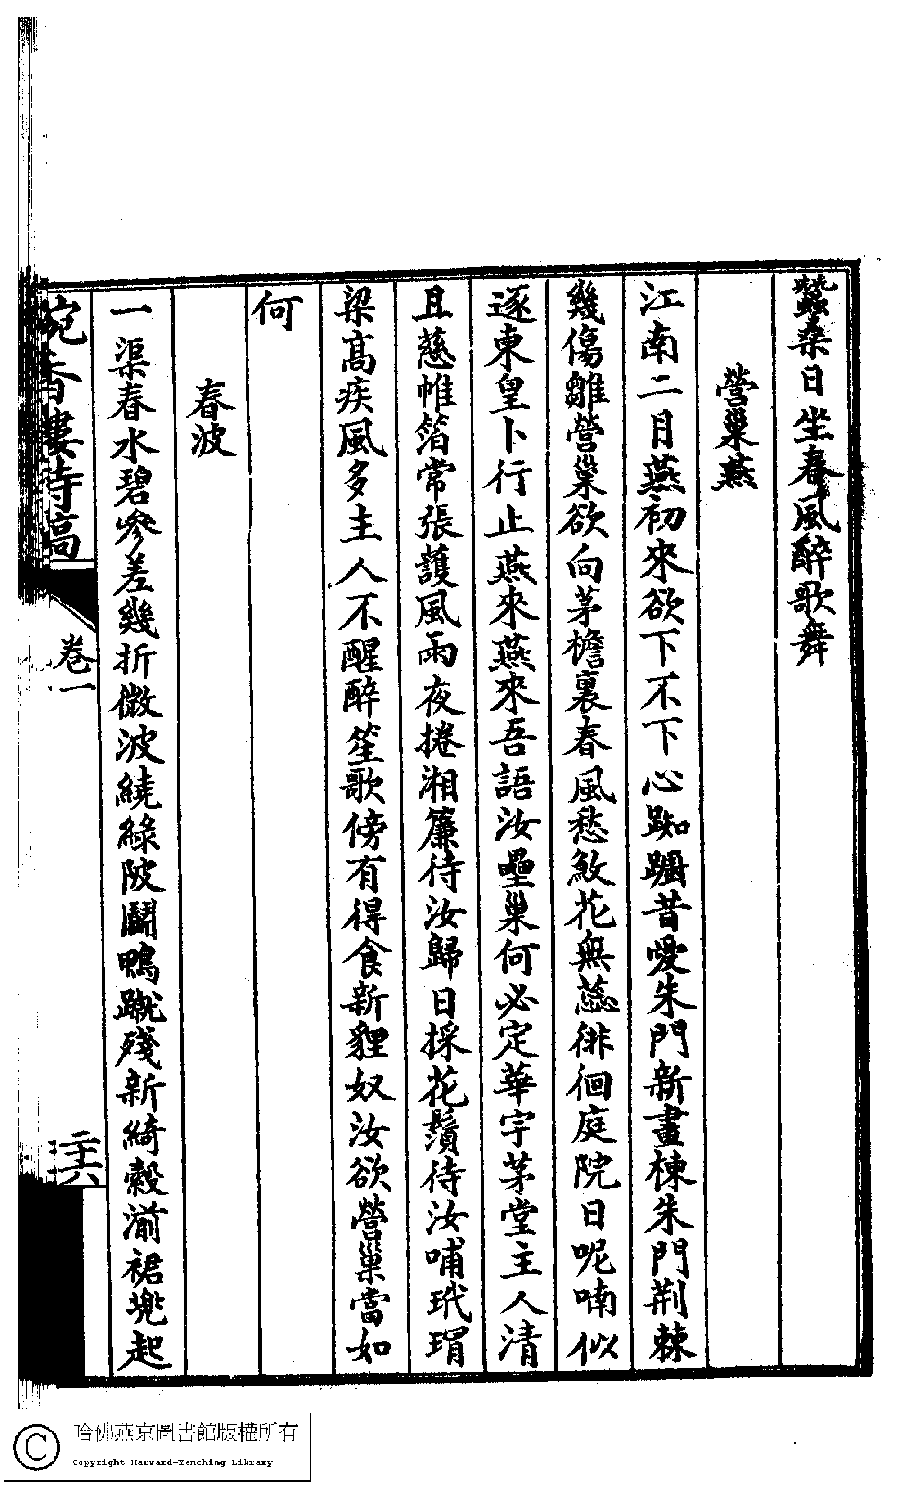 蠶桑日坐春風醉歌舞
營巢燕
江南二月燕初來欲下不下心踟躕昔愛朱門新畫棟朱門荆棘
幾傷雛營巢欲向茅檐裏春風愁煞花無蕊徘徊庭院日呢喃似
逐東皇卜行止燕來燕來吾語汝壘巢何必定華宇茅堂主人清
且慈帷箔常張護風雨夜捲湘簾待汝歸日採花鬚待汝哺玳瑁
梁高疾風多主人不醒醉笙歌傍有得食新貍奴汝欲營巢當如
何
春波
一渠春水碧參差幾折微波繞綠陂鬭鴨蹴殘新綺縠湔裙兜起
宛香樓詩稿
卷一
二十六
哈佛燕京圖書館版權所有
Copyright Harvard-Yenching Library